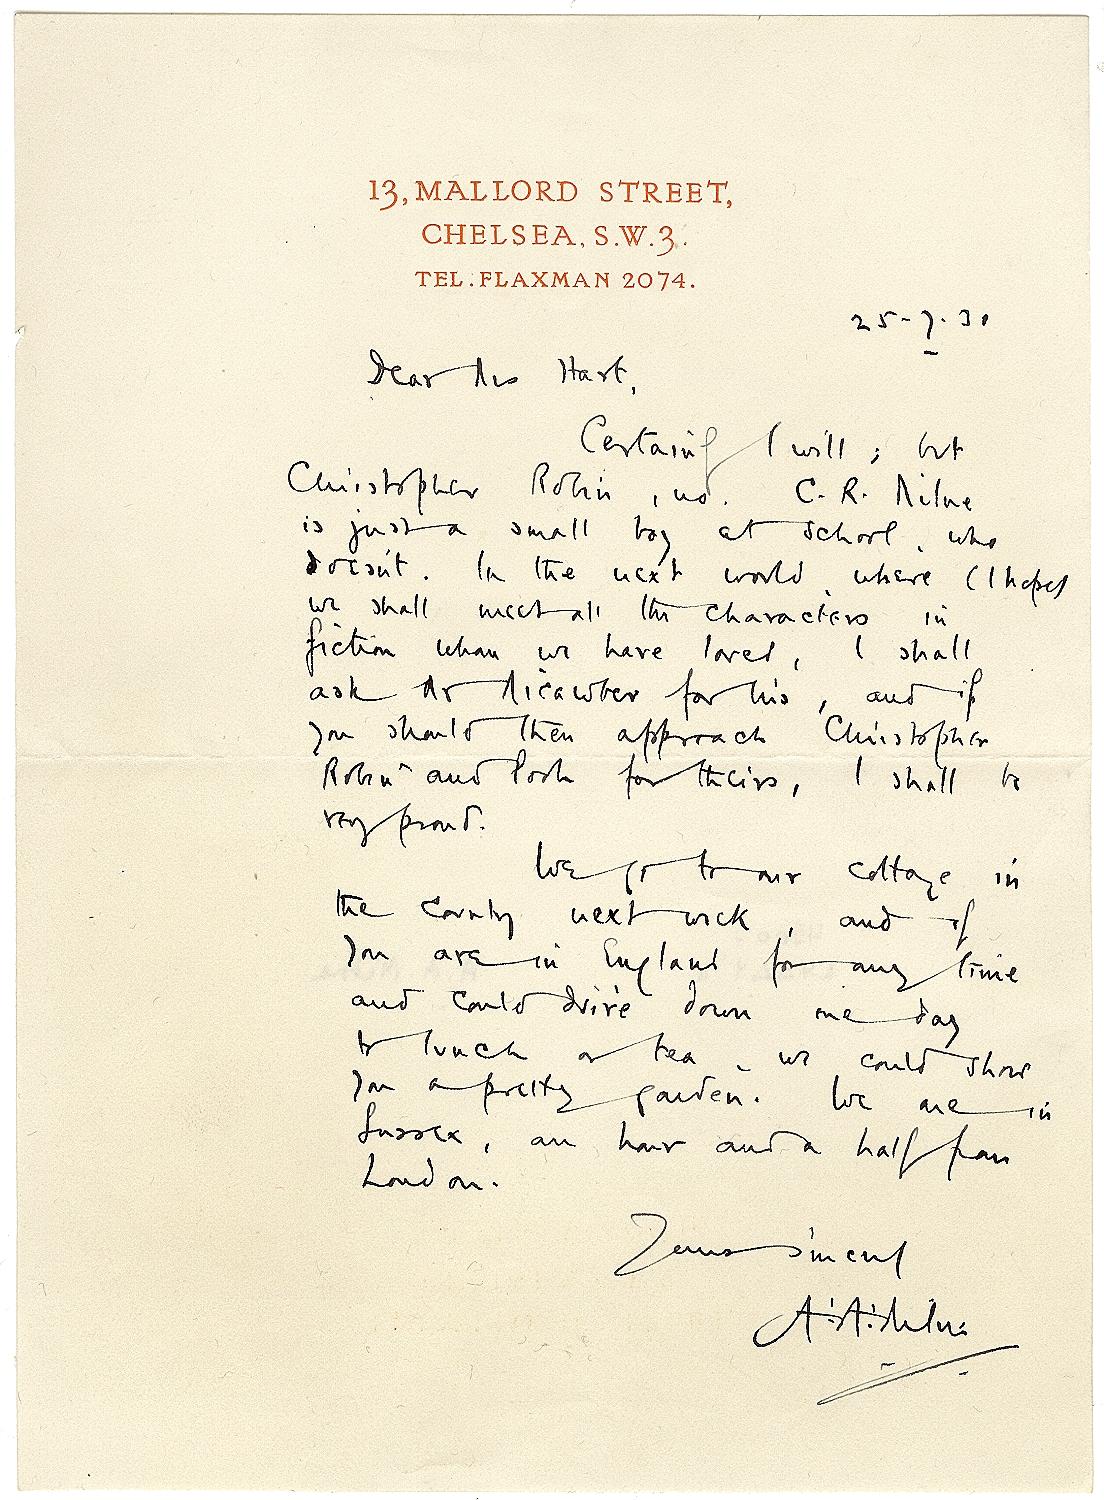 13, MALLORD STREET,
CHELSEA, S.W.3.
TEL. FLAXMAN 2074.
25-7-30
Dear Mrs Hart,
Certainly I will; but
Christopher Robin, no. C. R. Milne
is just a small boy at school, who
doesn't. In the next world, where (I hope)
we shall meet all the characters in
fiction whom we have loved, I shall
ask Mr Micawber for his, and if
you should then approach Christopher
Robin and Pooh for theirs, I shall be
very proud.
We go to our cottage in
the country next week, and if
you are in England for any time
and could drive down one day
to lunch or tea, we could show
you a pretty garden. We are in
Sussex, an hour and a half from
London.
Yours sincerely
A. A. Milne